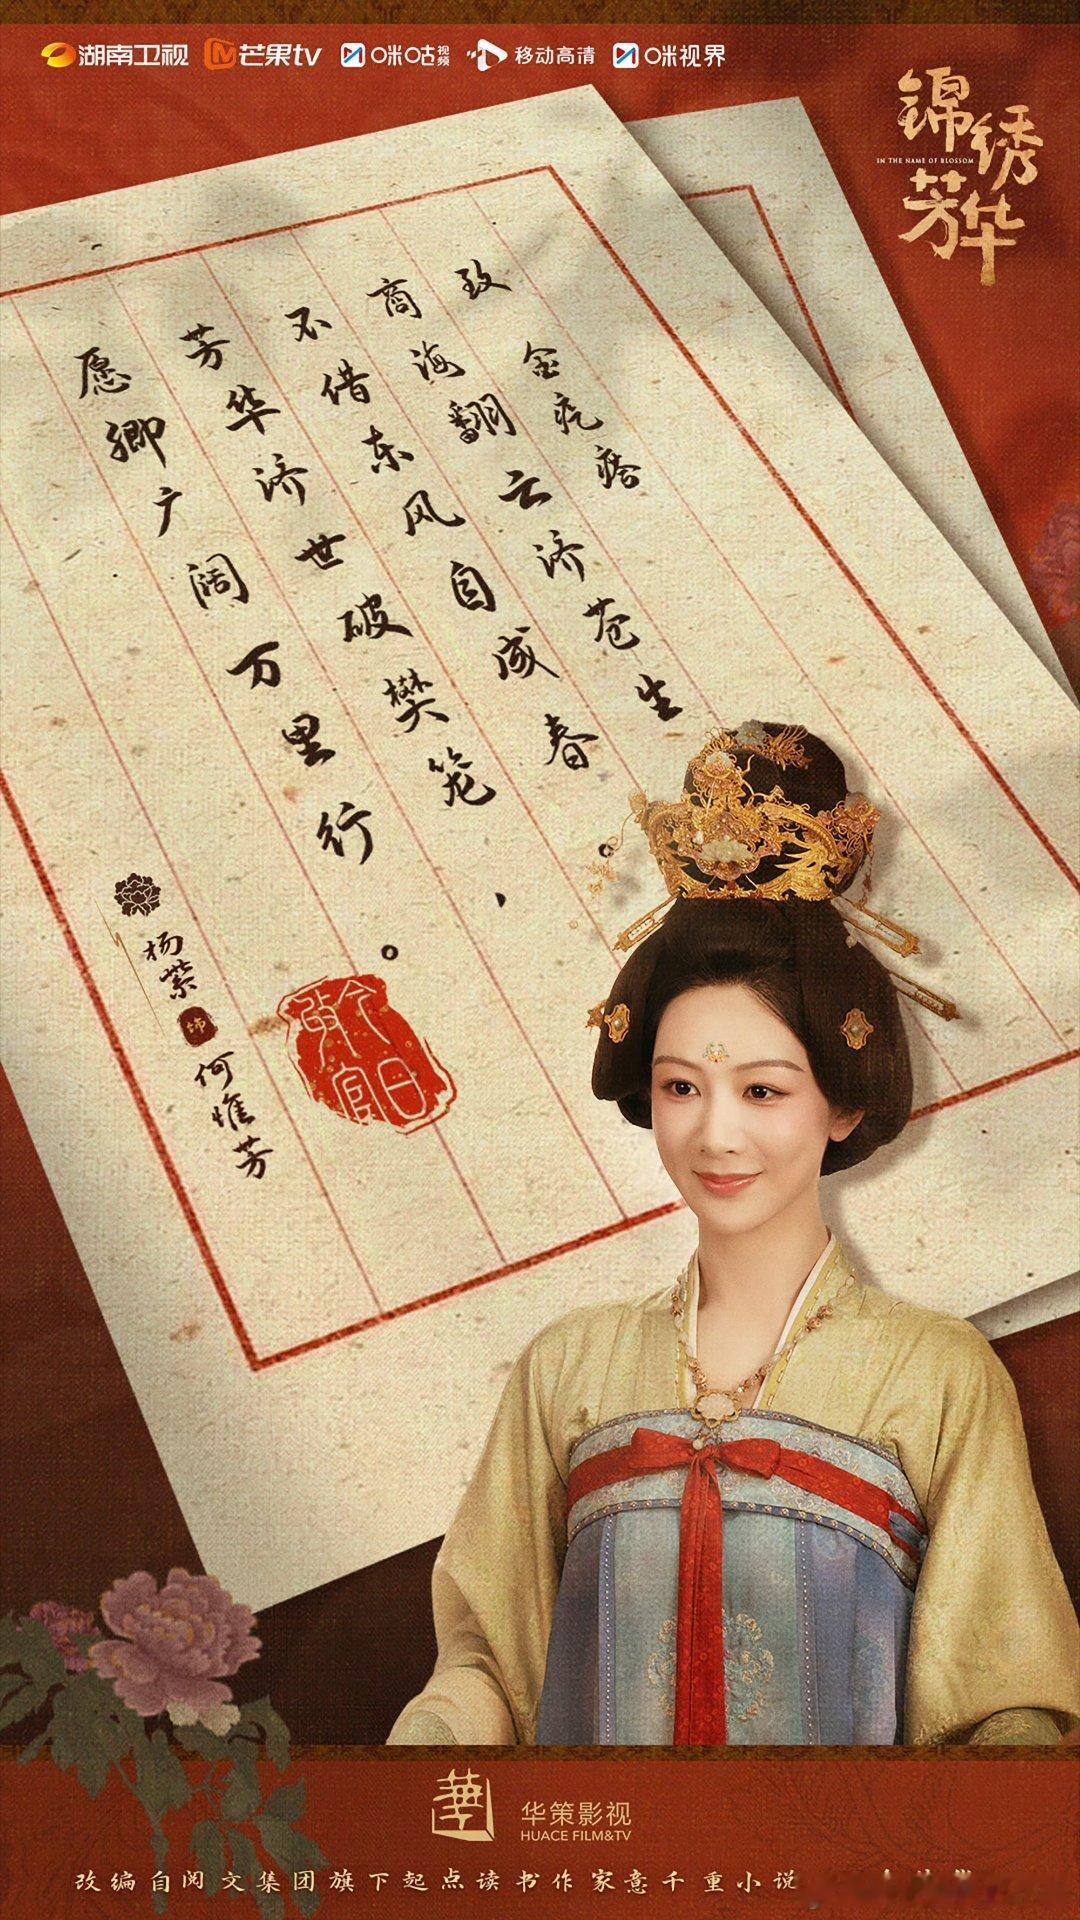 湖南卫视 芒果tv 咪咕视频 移动高清 咪视界
锦绣芳华
IN THE NAME OF BLOSSOM
致 金疙瘩
商海翻云济苍生
不借东风自成春。
芳华济世破樊笼、
愿卿广阔万里行。
杨紫 饰 何惟芳
今日
宜
華
华策影视
HUACE FILM&TV
改编自阅文集团旗下起点读书作家意千重小说